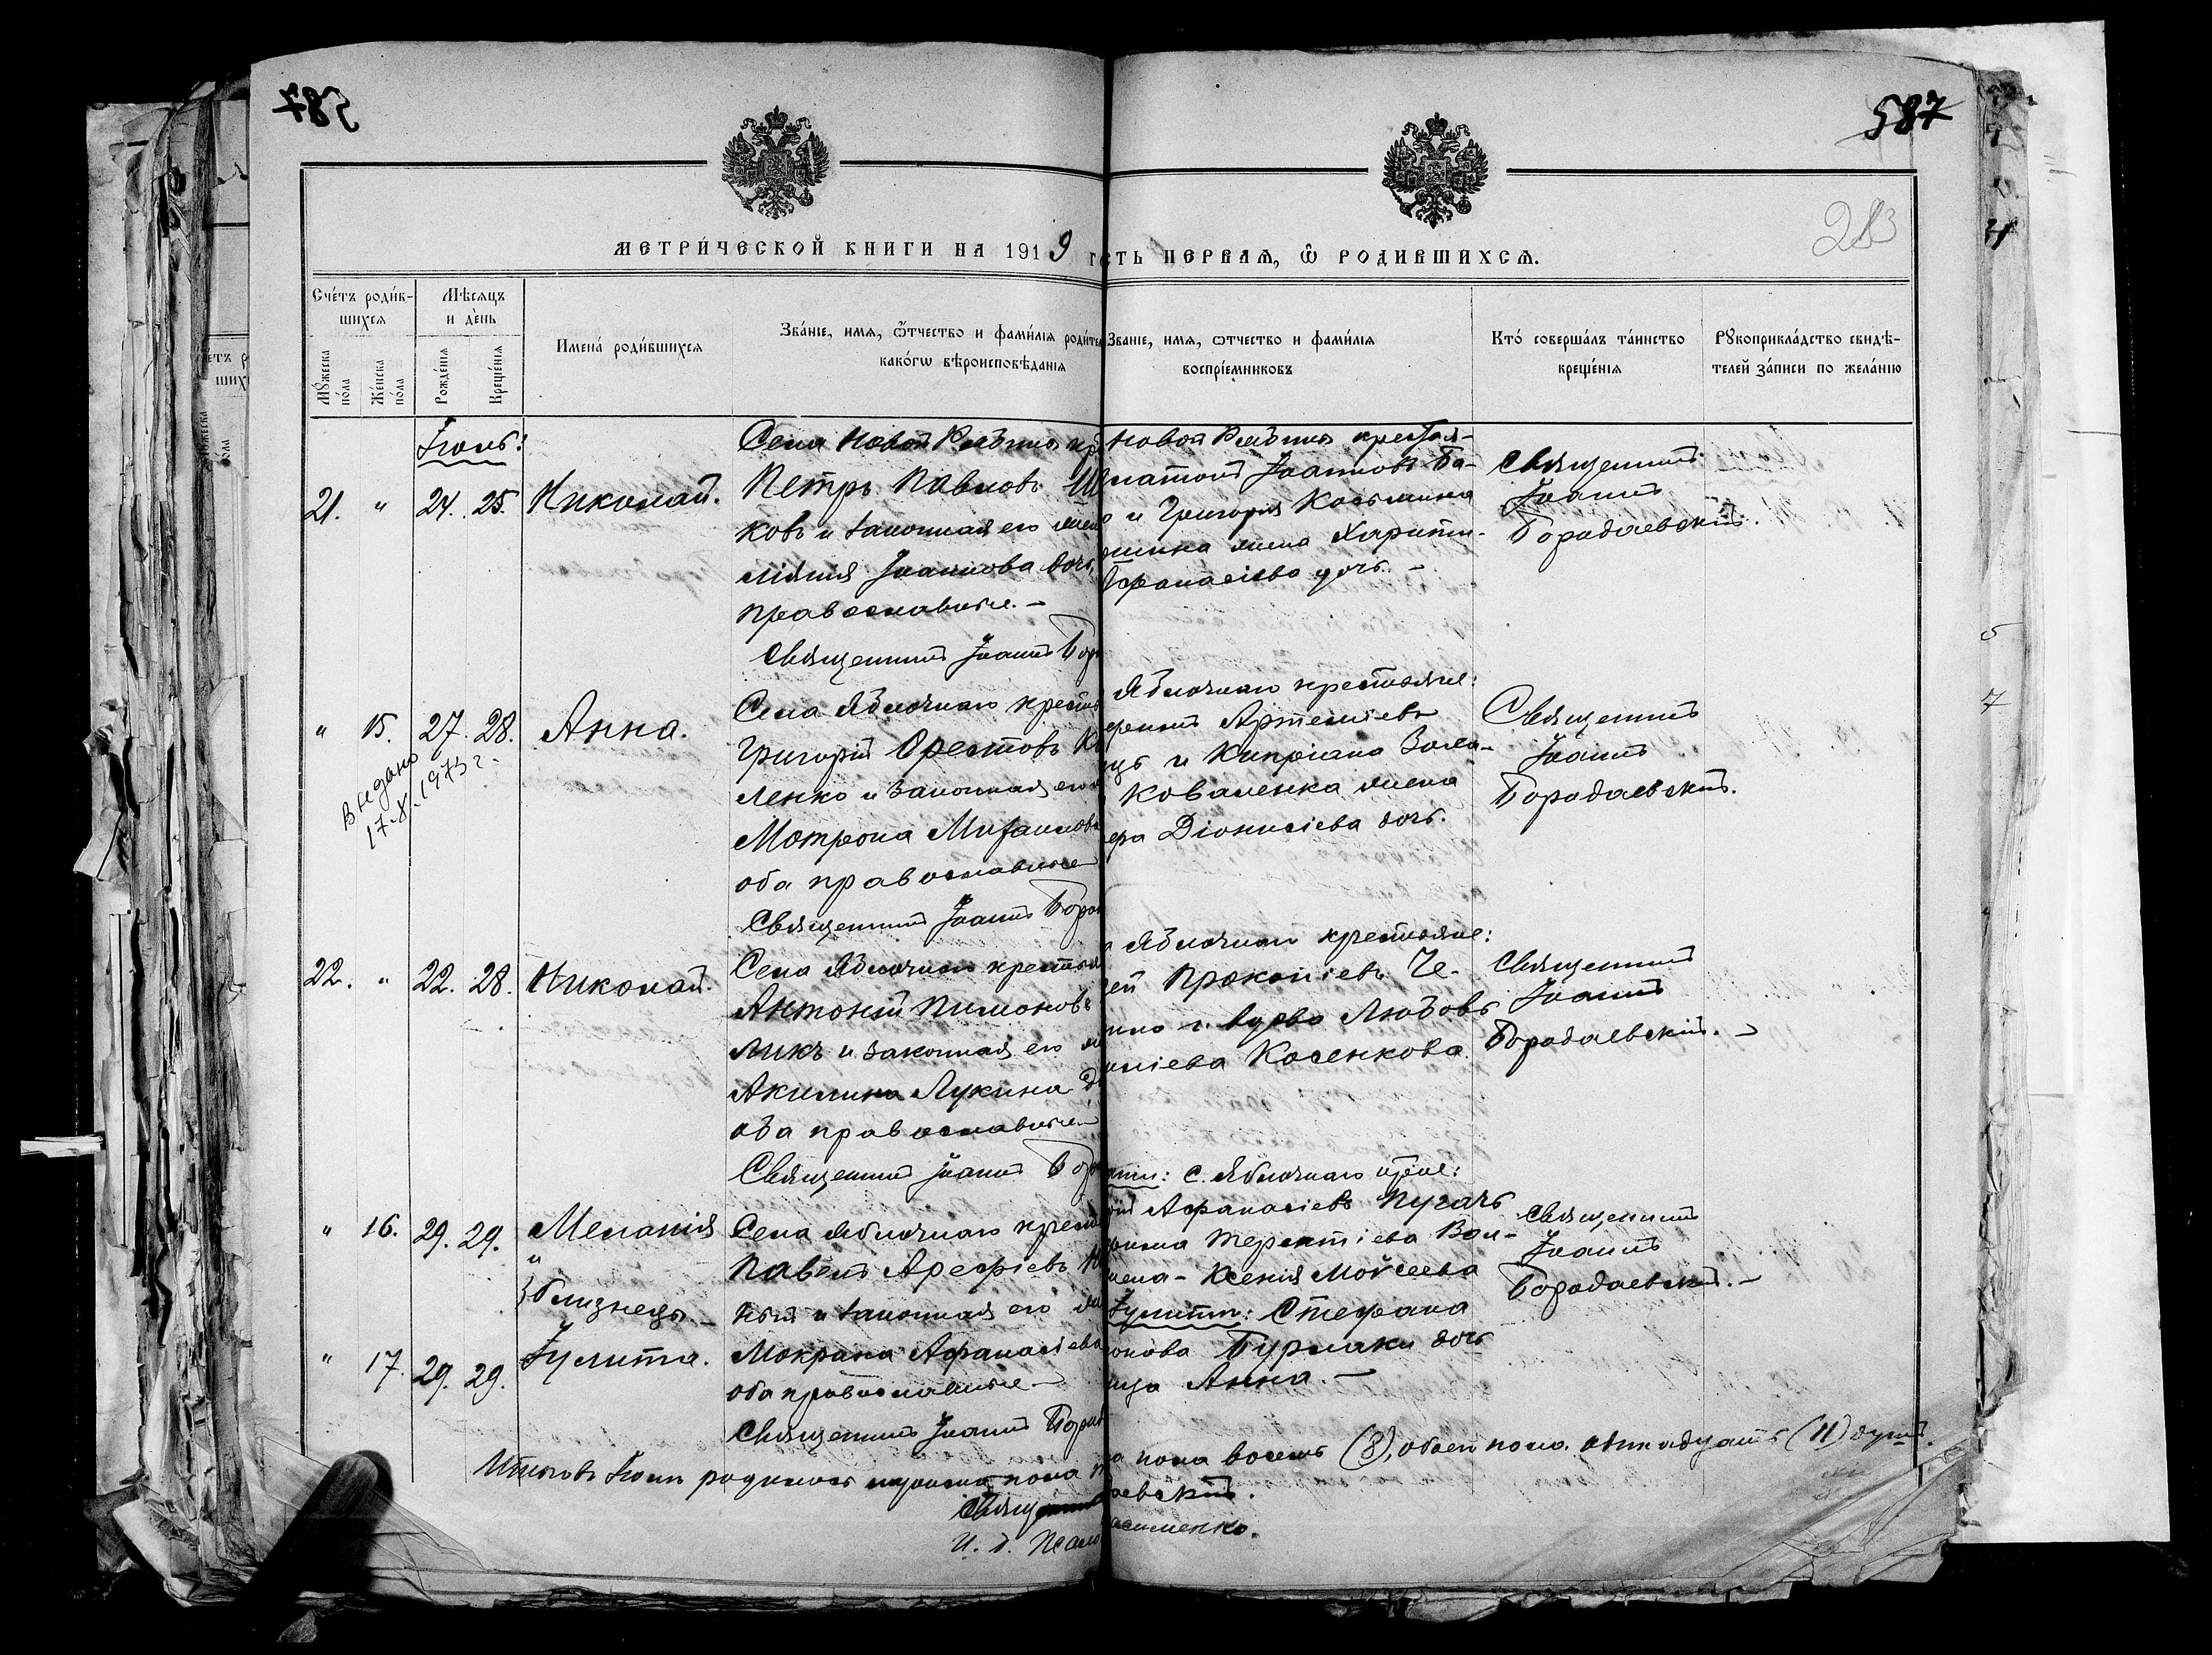 587
587
283
МЕТРИЧЕСКОЙ КНИГИ НА 1919 г
сть ПЕРВАЯ, Ѡ РОДИВШИХСЯ.
Счетъ родившихся
Мѣсяцъ и день
Мужеска пола
Женска пола
Рожденія
Крещенія
Имена родившихся
Званіе, имя, ѿтчество и фамилія родител
какогѡ вѣроисповѣданія
Званіе, имя, ѡтчество и фамилія
воспріемниковъ
Кто совершалъ таинство
крещенія
Рукоприкладство свидѣ-
телей записи по желанію
Іюль:
21. " 24. 25. Николай.
Села Новой Рябины кр
Петръ Павловъ Ш
ковъ и законная его жен
Іоаннова дочь,
православные. –
Священникъ Іоаннъ Бор
Новой Рябины крестья-
Іоанновъ Ба-
и Григорія Косьмина
жена Харити-
Афанасіева дочь. –
Священникъ
Іоаннъ
Бородаевскій.
" 15. 27. 28. Анна.
Выдано
17.X.1973 г.
Села Яблочнаго кресть
Григорій Орестовъ Ко
ленко и законная его
Мотрона Михаилова
оба православные
Священникъ Іоаннъ Боро
Яблочнаго крестьяне:
Артеміевъ
и Кипріана
Коваленка жена
Діонисіева дочь.
Священникъ
Іоаннъ
Бородаевскій.
22. " 22. 28. Николай.
Села Яблочнаго крестья
Антоній Пимоновъ
ликъ и законная его
Акилина Лукина д
оба православные
Священникъ Іоаннъ Бор
Яблочнаго крестьяне:
ей Прокопіевъ Че-
и вдова Любовь
Косенкова.
Священникъ
Іоаннъ
Бородаевскій. –
" 16. 29. 29. Меланія
и
близнецы. –
" 17. 29. 29. Іулитта.
Села Яблочнаго крест
Павелъ Арефіевъ
ный и законная его
Мокрина Афанасіева
оба православные –
Священникъ Іоаннъ Бород
с. Яблочнаго
Афанасіевъ Пугачъ
Терентіева Вол-
жена – Ксенія Мойсеева
Іулитты: Стефана
Бурлаки дочь
Анна. –
Священникъ
Іоаннъ
Бородаевскій. –
Итого въ Іюлѣ родилось мужска пола
пола восемь (8), обоего пола одинадцать (11) душъ.
Священ
аевскій.
И. д. Псало
асименко.